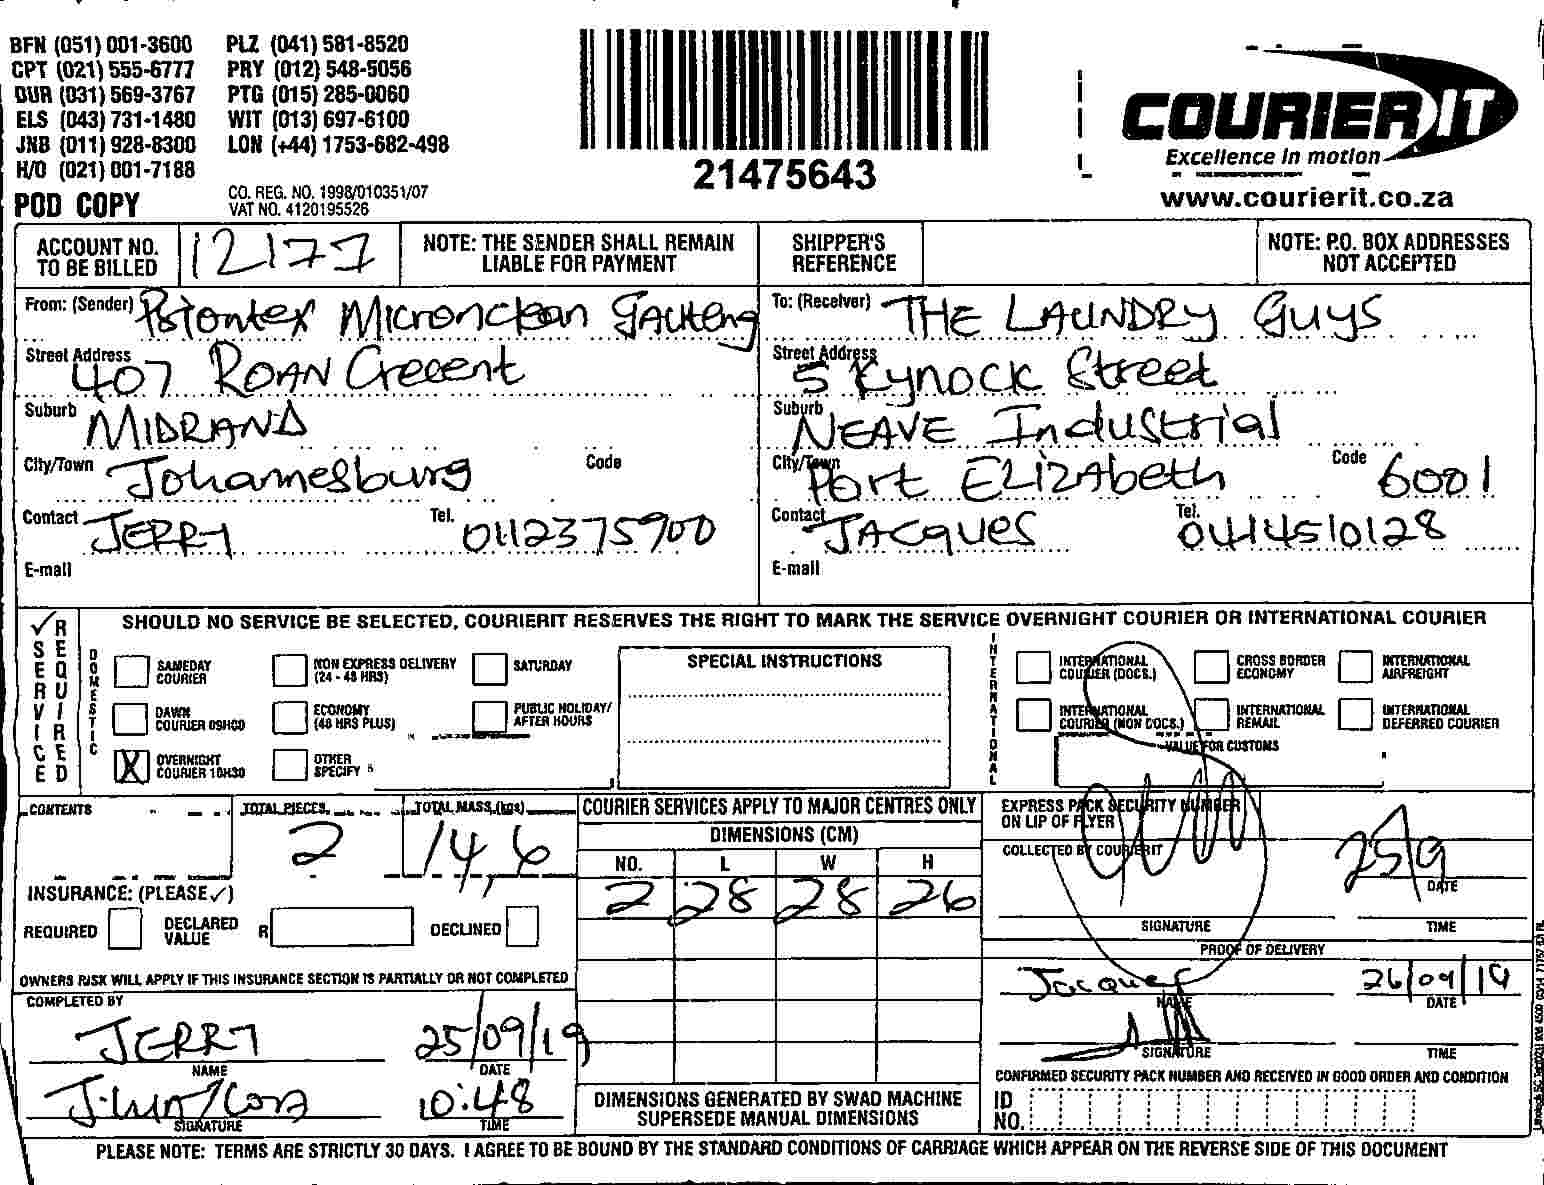 BFN (051) 001-3600 PLZ (041) 581-8520
CPT (021) 555-6777 PRY (012) 548-5056
DUR (031) 569-3767 PTG (015) 285-0060
ELS (043) 731-1480 WIT (013) 697-6100
JNB (011) 928-8300 LON (+44) 1753-682-498
H/O (021) 001-7188
POD COPY
CO. REG. NO. 1998/010351/07
VAT NO. 4120195526
21475643
COURIER IT
Excellence in motion
www.courierit.co.za
ACCOUNT NO. TO BE BILLED 12177
NOTE: THE SENDER SHALL REMAIN LIABLE FOR PAYMENT
SHIPPER'S REFERENCE
NOTE: P.O. BOX ADDRESSES NOT ACCEPTED
From: (Sender) Micronclean Gauteng
Street Address 407 ROAN Crecent
Suburb MIDRAND
City/Town Johannesburg Code
Contact JERRY Tel. 0112375900
E-mail
To: (Receiver) THE LAUNDRY Guys
Street Address 5 Kynock Street
Suburb NEAVE Industrial
City/Town Port ELIZAbeth Code 6001
Contact JACques Tel. 0414510128
E-mail
✓ SERVICE REQUIRED
SHOULD NO SERVICE BE SELECTED, COURIERIT RESERVES THE RIGHT TO MARK THE SERVICE OVERNIGHT COURIER OR INTERNATIONAL COURIER
DOMESTIC
SAMEDAY COURIER
NON EXPRESS DELIVERY (24 - 48 HRS)
SATURDAY
DAWN COURIER 09H00
ECONOMY (48 HRS PLUS)
PUBLIC HOLIDAY/ AFTER HOURS
X OVERNIGHT COURIER 10H30
OTHER SPECIFY
SPECIAL INSTRUCTIONS
INTERNATIONAL
INTERNATIONAL COURIER (DOCS.)
CROSS BORDER ECONOMY
INTERNATIONAL AIRFREIGHT
INTERNATIONAL COURIER (NON DOCS.)
INTERNATIONAL REMAIL
INTERNATIONAL DEFERRED COURIER
VALUE FOR CUSTOMS
CONTENTS
TOTAL PIECES 2
TOTAL MASS (kgs) 14,6
INSURANCE: (PLEASE ✓)
REQUIRED
DECLARED VALUE R
DECLINED
OWNERS RISK WILL APPLY IF THIS INSURANCE SECTION IS PARTIALLY OR NOT COMPLETED
COMPLETED BY
JERRY 25/09/19
NAME DATE
10:48
SIGNATURE TIME
COURIER SERVICES APPLY TO MAJOR CENTRES ONLY
DIMENSIONS (CM)
NO. L W H
2 28 28 26
DIMENSIONS GENERATED BY SWAD MACHINE SUPERSEDE MANUAL DIMENSIONS
EXPRESS PACK SECURITY NUMBER ON LIP OF FLYER
COLLECTED BY COURIERIT
25/9
DATE
SIGNATURE TIME
PROOF OF DELIVERY
Jacques 26/09/19
NAME DATE
SIGNATURE TIME
CONFIRMED SECURITY PACK NUMBER AND RECEIVED IN GOOD ORDER AND CONDITION
ID NO.
PLEASE NOTE: TERMS ARE STRICTLY 30 DAYS. I AGREE TO BE BOUND BY THE STANDARD CONDITIONS OF CARRIAGE WHICH APPEAR ON THE REVERSE SIDE OF THIS DOCUMENT